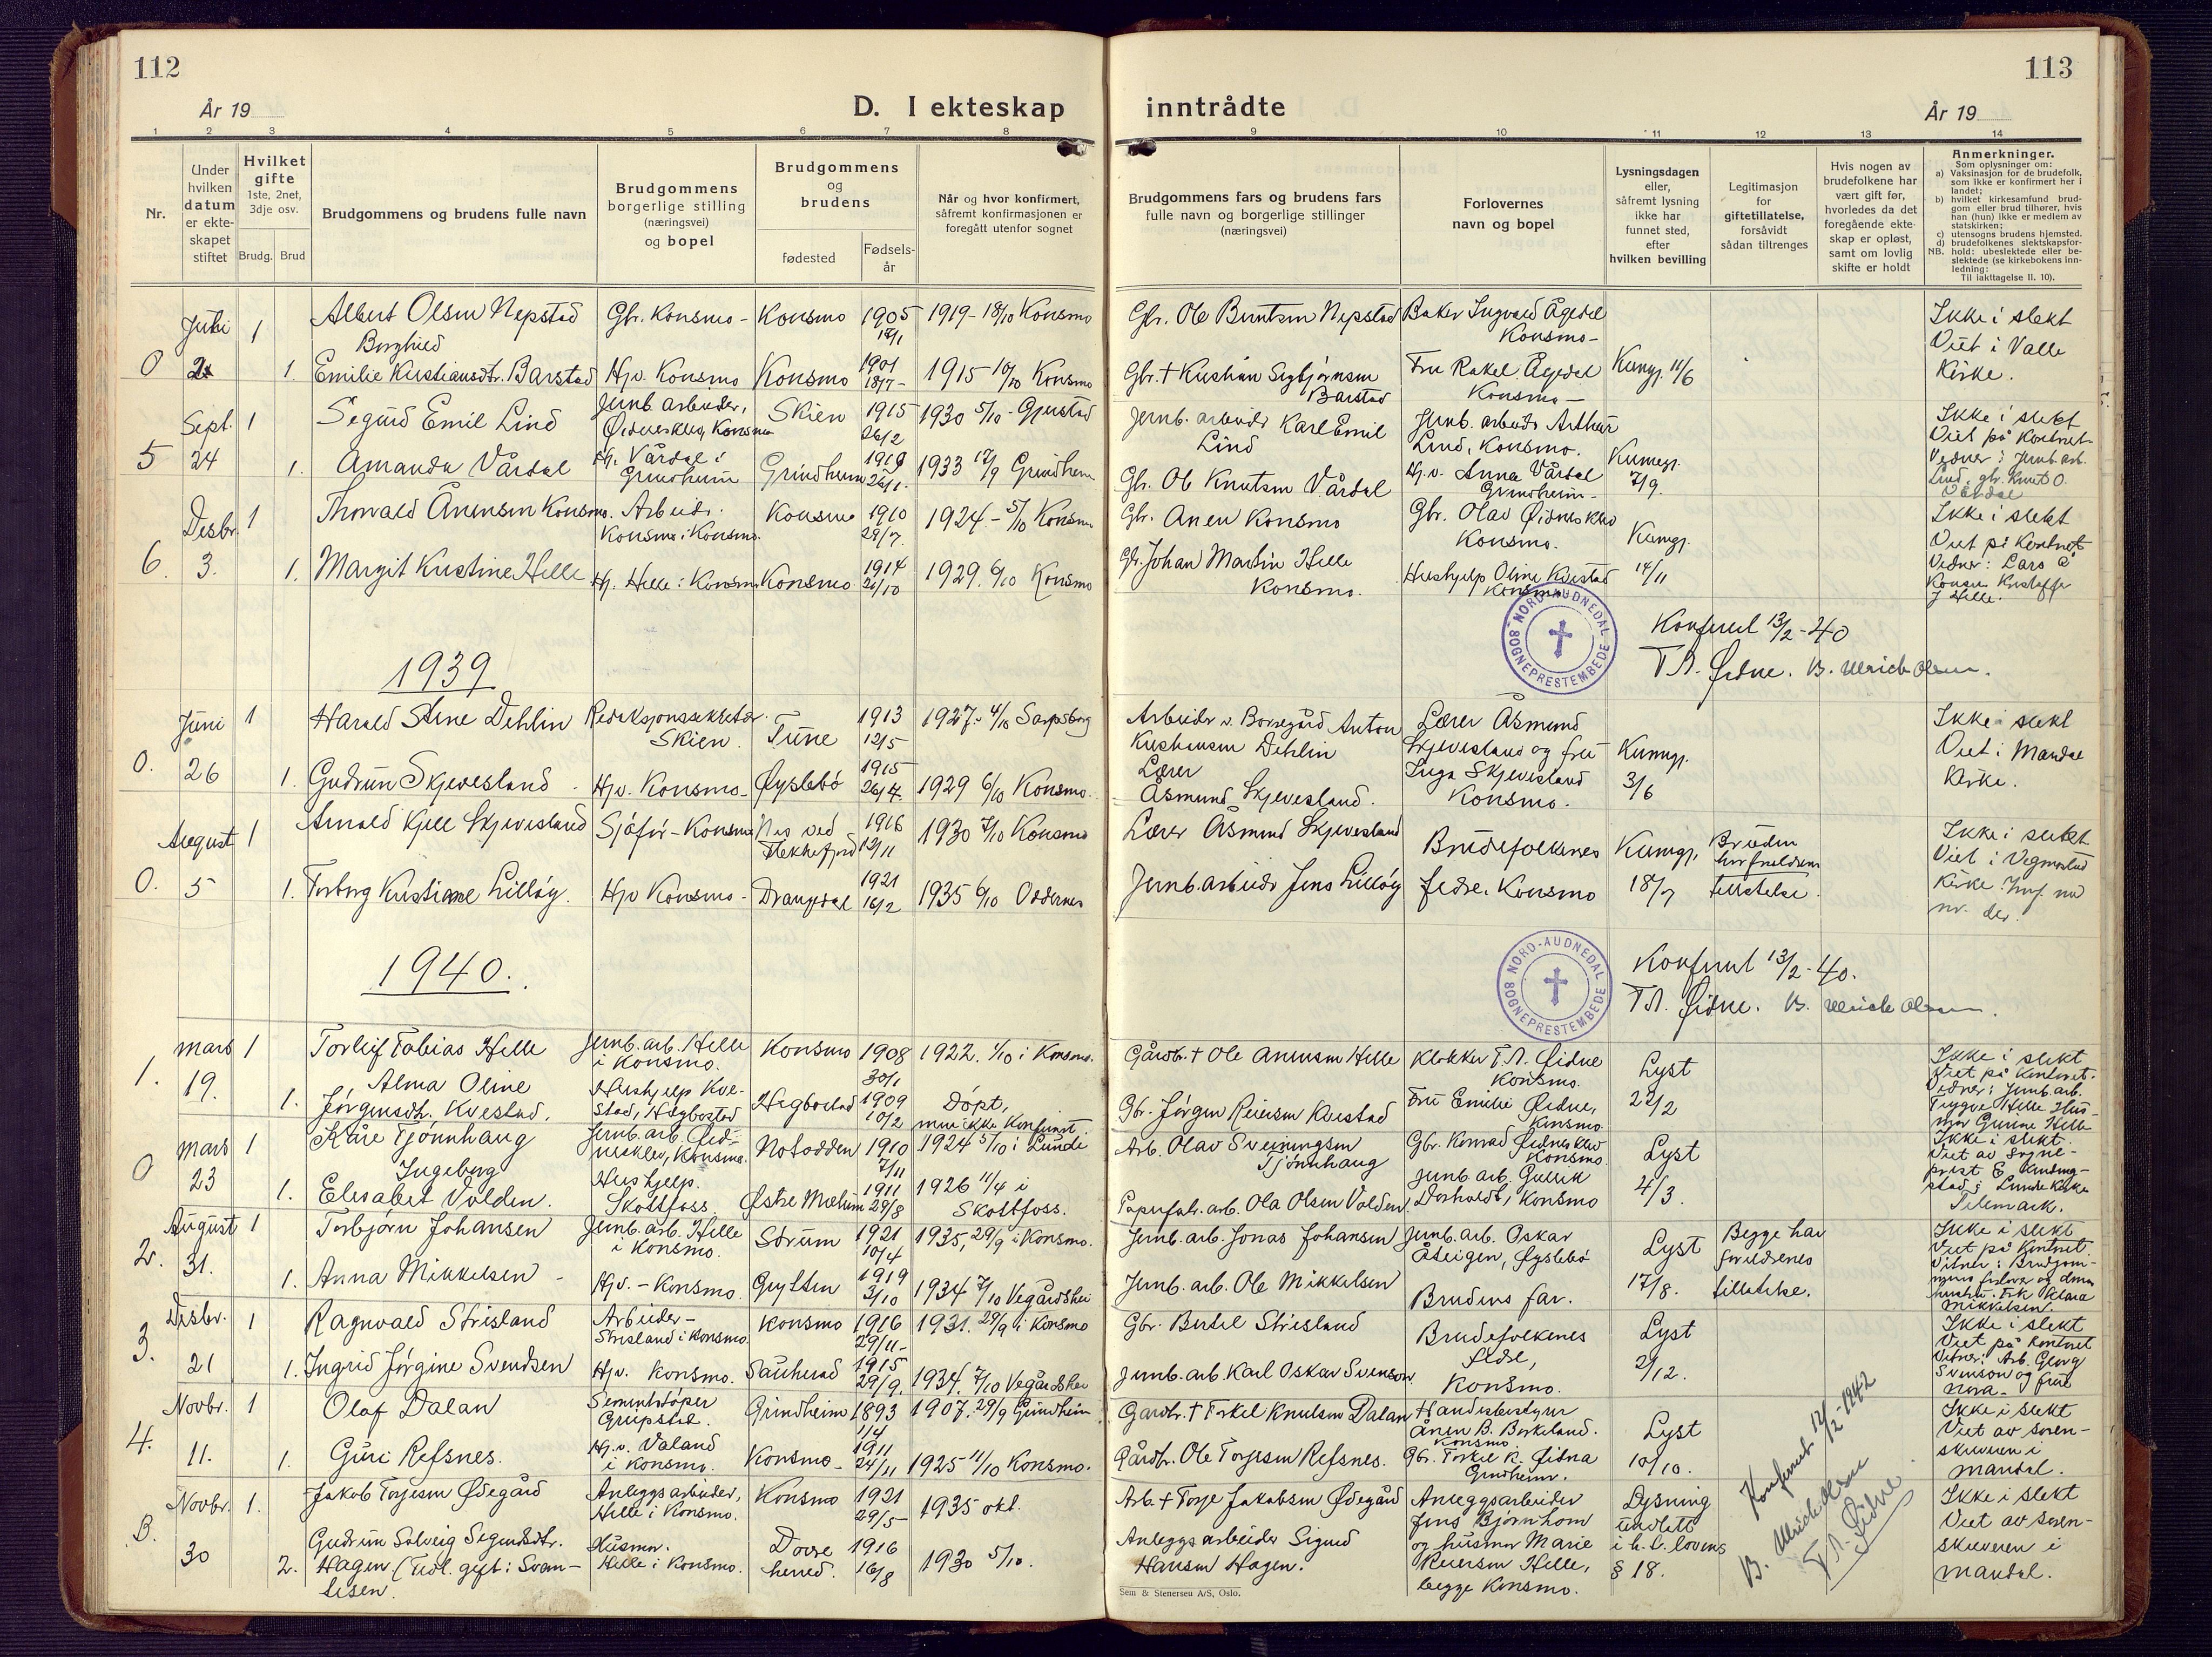 112
År 19
D. I ekteskap
inntrådte
113
År 19
1 2 3 4 5 6 7 8 9 10 11 12 13 14
Nr.
Under hvilken datum er ekteskapet stiftet
Hvilket gifte
1ste, 2net, 3dje osv.
Brudg. Brud
Brudgommens og brudens fulle navn
Brudgommens borgerlige stilling (næringsvei) og bopel
Brudgommens og brudens
fødested
Fødsels-år
Når og hvor konfirmert, såfremt konfirmasjonen er foregått utenfor sognet
Brudgommens fars og brudens fars fulle navn og borgerlige stillinger (næringsvei)
Forlovernes navn og bopel
Lysningsdagen eller, såfremt lysning ikke har funnet sted, efter hvilken bevilling
Legitimasjon for giftetillatelse, forsåvidt sådan tiltrenges
Hvis nogen av brudefolkene har vært gift før, hvorledes da det foregående ekteskap er opløst, samt om lovlig skifte er holdt
Anmerkninger.
Som oplysninger om:
a) Vaksinasjon for de brudefolk, som ikke er konfirmert her i landet;
b) hvilket kirkesamfund brudgom eller brud tilhører, hvis han (hun) ikke er medlem av statskirken;
c) utensogns brudens hjemsted.
d) brudefolkenes slektskapsfor-
NB. hold: ubeslektede eller beslektede (se kirkebokens innledning:
Til iakttagelse II. 10).
0 1 Albert Olsen Nepstad Gbr. Konsmo - Konsmo 1905 1919 - 18/10 Konsmo Gbr. Ole Berntsen Nepstad Baker Ingvald Ågedal Konsmo - Ikke i slekt
Borghild
1. Emilie Kristiansdtr. Barstad Hjv. Konsmo Konsmo 1901 18/7 - 1915 10/10 Konsmo Gbr. + Kristian Sigbjørnsen Barstad Fru Rakel Ågedal Konsmo - Kunngj. 11/6 Viet i Valle Kirke.
5 Sept. 24 1 Sigurd Emil Lind Jernb. arbeider, Øidnesklev, Konsmo Skien 1915 26/2 1930 5/10 - Gjerstad Jernb. arbeider Karl Emil Lind Jernb. arbeider Arthur Lind, Konsmo. Kunngj. 7/9. Ikke i slekt
1. Amanda Vårdal Hj. Vårdal i Grindheim Grindheim 1919 26/1. 1933 17/9 Grindheim Gbr. Ole Knutsen Vårdal Hj.v. Anna Vårdal Grindheim - Viet på Kontoret Vidner: Jernb. arb. Lind, gbr. Knut O. Vårdal
6. Desbr. 3. 1 Thorvald Ånensen Konsmo. Arbeider. Konsmo i Konsmo. Konsmo 1910 29/7 1924 - 5/10 Konsmo Gbr. Ånen Konsmo Gbr. Olav Øidnesklev Konsmo. Kunngj. 14/11 Ikke i slekt
1. Margit Kristine Helle Hj. Helle i Konsmo Konsmo 1914 21/10 1929. 6/10 Konsmo Gbr. Johan Martin Helle Konsmo. Hushjelp Oline Kvestad Konsmo Viet på Kontoret Vidner: Lars
J Helle.
NORD-AUDNEDAL SOGNEPRESTEMBEDE
Konferert 13/2 - 40
T.A. Øidne. B. Ulrich Olsen.
1939
0. Juni 26 1 Harald Arne Dehlin Redaksjonssekretær. Skien. Tune 1913 12/5 1927. 4/10 Sarpsborg Arbeider v. Borregård Anton Kristiansen Dehlin Lærer Åsmund Skjevesland og fru Inga Skjevesland Konsmo. Kunngj. 3/6 Ikke i slekt
1. Gudrun Skjevesland. Hjv. Konsmo - Øyslebø 1915 26/4. 1929 6/10 Konsmo. Lærer Åsmund Skjevesland. Viet i Mandal Kirke.
0. August 5 1 Arnold Kjell Skjevesland Sjåfør - Konsmo Nes ved Flekkefjord 1916 12/11 1930 7/10 Konsmo Lærer Åsmund Skjevesland Brudefolkenes fedre. Konsmo Kunngj. 18/7 Bruden har foreldrenes tillatelse. Ikke i slekt
1. Torborg Kristiane Lilløy. Hjv Konsmo - Drangedal 1921 16/2 1935 6/10 Oddernes Jernb. arbeider Jens Lilløy Viet i Vigmostad Kirke. Innf. med nr. der.
1940.
NORD-AUDNEDAL SOGNEPRESTEMBEDE
Konferert 13/2 - 40.
T.A. Øidne. B. Ulrich Olsen.
1. Mars 19. 1 Torleif Tobias Helle Jernb. arb. Helle i Konsmo. Konsmo 1908 30/1 1922. 1/10 i Konsmo. Gårdbr. + Ole Ånensen Helle Klokker T.A. Øidne Konsmo. Lyst 22/2 Ikke i slekt
1. Alma Oline Jørgensdtr. Kvestad. Hushjelp Kvestad, Hægbostad Hægbostad 1909 10/2 Døpt, men ikke Konfirmt. Gbr. Jørgen Reiersen Kvestad Fru Emilie Øidne, Konsmo Viet på Kontoret. Vidner: Jernb. arb. Trygve Helle Husmor Gunne Helle
0 Mars 23 1 Kåre Tjønnhaug Jernb. arb. Øidnesklev, Konsmo. Notodden 1910 7/11 1924 5/10 i Lunde Arb. Olav Sveinungsen Tjønnhaug Gbr. Konrad Øidnesklev Konsmo Lyst 4/3. Ikke i slekt.
1. Ingeborg Elisabet Volden. Hushjelp. Skotfoss. Østre Mælum 1911 29/8 1926 11/4 i Skotfoss. Papirfabr. arb. Ola Olsen Volden Jernb. arb. Gullik Dorholdt, Konsmo Viet av sogneprest E. i Lunde Kirke Telemark.
2. August 31. 1 Torbjørn Johansen Jernb. arb. Helle i Konsmo. Strum 1921 10/4 1935, 29/9 i Konsmo. Jernb. arb. Jonas Johansen Jernb. arb. Oskar Åteigen, Øyslebø Lyst 17/8. Begge har foreldrenes tillatelse. Ikke i slekt
1. Anna Mikkelsen - Hjv. - Konsmo. 1919 3/10 1934 7/10 Vegårdshei Jernb. arb. Ole Mikkelsen Brudens far. Viet på Kontoret. Vitner: Brudgommens forlover og Frk Klara Mikkelsen.
3. Desbr. 21 1 Ragnvald Strisland Arbeider - Strisland i Konsmo. Konsmo 1916 29/11 - 1931. 29/9 i Konsmo Gbr. Bertel Strisland Brudefolkenes fedre, Konsmo. Lyst 2/12. Ikke i slekt
1. Ingrid Jørgine Svendsen Hjv. Konsmo. Sauherad 1915 29/9. 1934. 7/10 Vegårdshei Jernb. arb. Karl Oskar Svenson Viet på Kontoret Vitner: Arb. Georg Svenson og frue Nora.
4. Novbr. 11. 1 Olaf Dalan Sementstøper Gripstal. Grindheim 1893 1/4 1907. 29/9 Grindheim Gårdbr. + Torkel Knutsen Dalan Handelsbestyrer Ånen B. Birkeland. Konsmo Lyst 10/10. Ikke i slekt
1. Guri Refsnes. Hj.v. Valand i Konsmo. Konsmo - 1911 24/11 1925 11/10 Konsmo. Gårdbr. Ole Torjesen Refsnes. Gbr. Torkel K. Øidna Grindheim. Viet av sorenskriveren i Mandal.
B. Novbr. 30 1. Jakob Torjesen Ødegård Anleggsarbeider, Helle i Konsmo. Konsmo 1921 29/5 - 1935 okt. Arb. + Torje Jakobsen Ødegård Anleggsarbeider Jens Bjørnholm og husmor Marie Reiersen Helle, begge Konsmo. Lysning undlatt i h.t. lovens § 18. Ikke i slekt
2. Gudrun Solveig Sigurdsdtr. Hagen (Tidl. gift: Svan- Husmor. Helle i Konsmo. Dovre herred. 1916 16/8 1930 5/10. Anleggsarbeider Sigurd Hansen Hagen. Viet av sorenskriveren i Mandal.
Konferert 12/2 - 1942
B. Ulrich Olsen
T.A. Øidne
Sem & Stenersen A/S, Oslo.